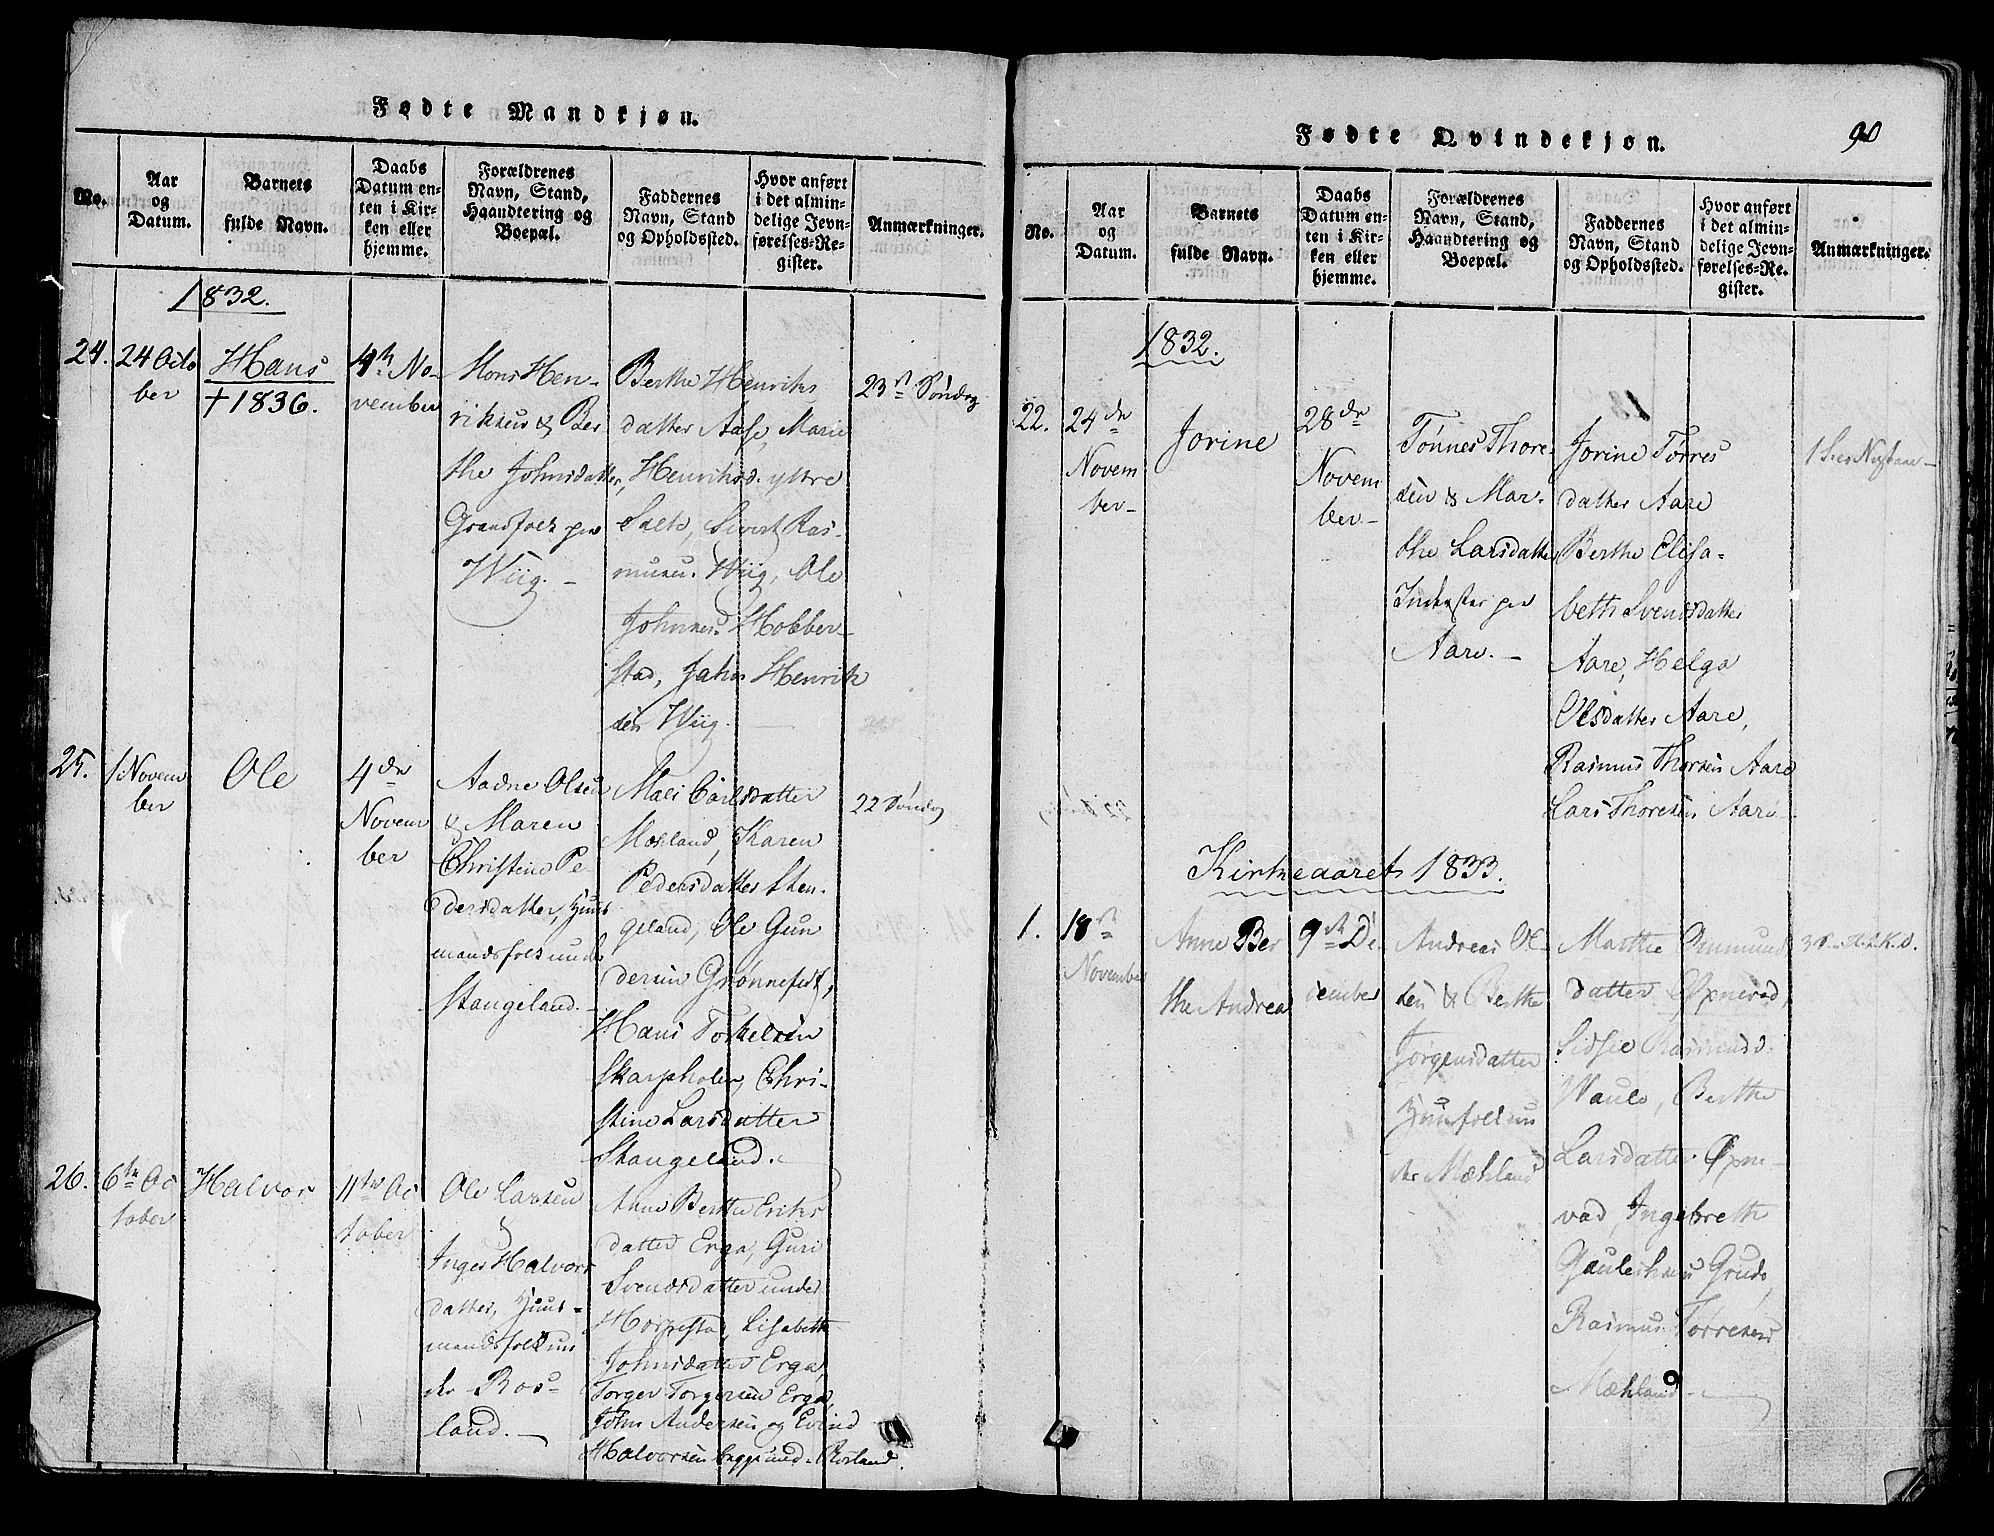 Fødte Mandkjøn.
No.
Aar
og
Datum.
Barnets
fulde Navn.
Daabs
Datum en-
ten i Kir-
ken eller
hjemme.
Forældrenes
Navn, Stand,
Haandtering og
Boepæl.
Faddernes
Navn, Stand
og Opholdssted.
Hvor anført
i det almin-
delige Jevn-
førelses-Re-
gister.
Anmærkninger.
1832.
24.
24 Octo
ber
Hans
+ 1836.
4de No-
vember
Mons Hen-
riksen & Ber
the Johnsdatter,
Gaardfolk paa
Wiig. -
Berthe Henriks
datter Aase, Marie
Henriksd. yttre
Salte, Sivert Ras-
musen. Wiig, Ole
Johnsen. Hobber-
stad, Johs Henrik
sen Wiig.
23de Søndag
25.
1 Novem
ber
Ole
4de
Novem
ber
Aadne Olsen
& Maren
Christine Pe-
dersdatter, Huus
mandsfolk under
Stangeland. -
Mali Carlsdatter
Mosland, Karen
Pedersdatter Sten-
geland, Ole Gun
dersen Grønnefest,
Hans Torkelsen
Skarpholen, Chri-
stine Larsdatter
Stangeland. -
22 Søndag
26.
6te Oc
tober
Halvor
11te Oc
tober
Ole Larsen
&
Inger Halvors
datter, Huus-
mandsfolk un
der Ros-
land. -
Anne Berthe Eriks
datter Erga, Guri
Svendsdatter under
Horpestad, Lisabeth
Johnsdatter Erga,
Torger Torgersen Erga,
John Andersen og Evind
Halvorsen begge und. Rosland.
Fødte Qvindekjøn.
90
No.
Aar
og
Datum.
Barnets
fulde Navn.
Daabs
Datum en-
ten i Kir-
ken eller
hjemme.
Forældrenes
Navn, Stand,
Haandtering og
Boepæl.
Faddernes
Navn, Stand
og Opholdssted.
Hvor anført
i det almin-
delige Jevn-
førelses-Re-
gister.
Anmærkninger.
1832.
22.
24de
Novem
ber-
Jorine
28de
Novem
ber-
Tønnes Thore-
sen & Mar-
the Larsdatter
Inderster paa
Aare. -
Jorine Tørres
datter Aare
Berthe Elisa-
beth Svendsdatter
Aare, Helga
Olsdatter Aare,
Rasmus Thorsen Aare
Lars Thoresen Aare.
Kirkeaaret 1833.
1.
18de
November
Anne Ber
the Andrea
9de De-
cember
Andreas Ol-
sen & Berthe
Jørgensdatter
Huusfolk un
der Mæhland
Marthe Ommunds
datter Opnevad,
Sidsie Rasmusd.
Waule, Berthe
Larsdatter Opne-
vad, Ingebreth
Gauleksen Grude,
Rasmus Tørresen
Mæhland. -